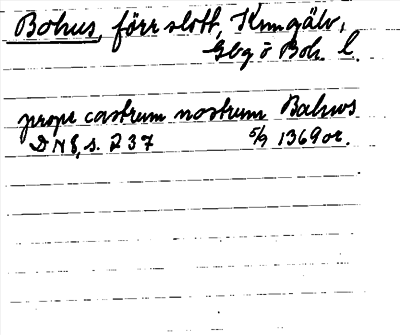 Bohus, förr slott, Kungälv,
Gbg o Boh. l.
prope castrum nostrum Bahws
DN 8, s. 237 5/9 1369 or.